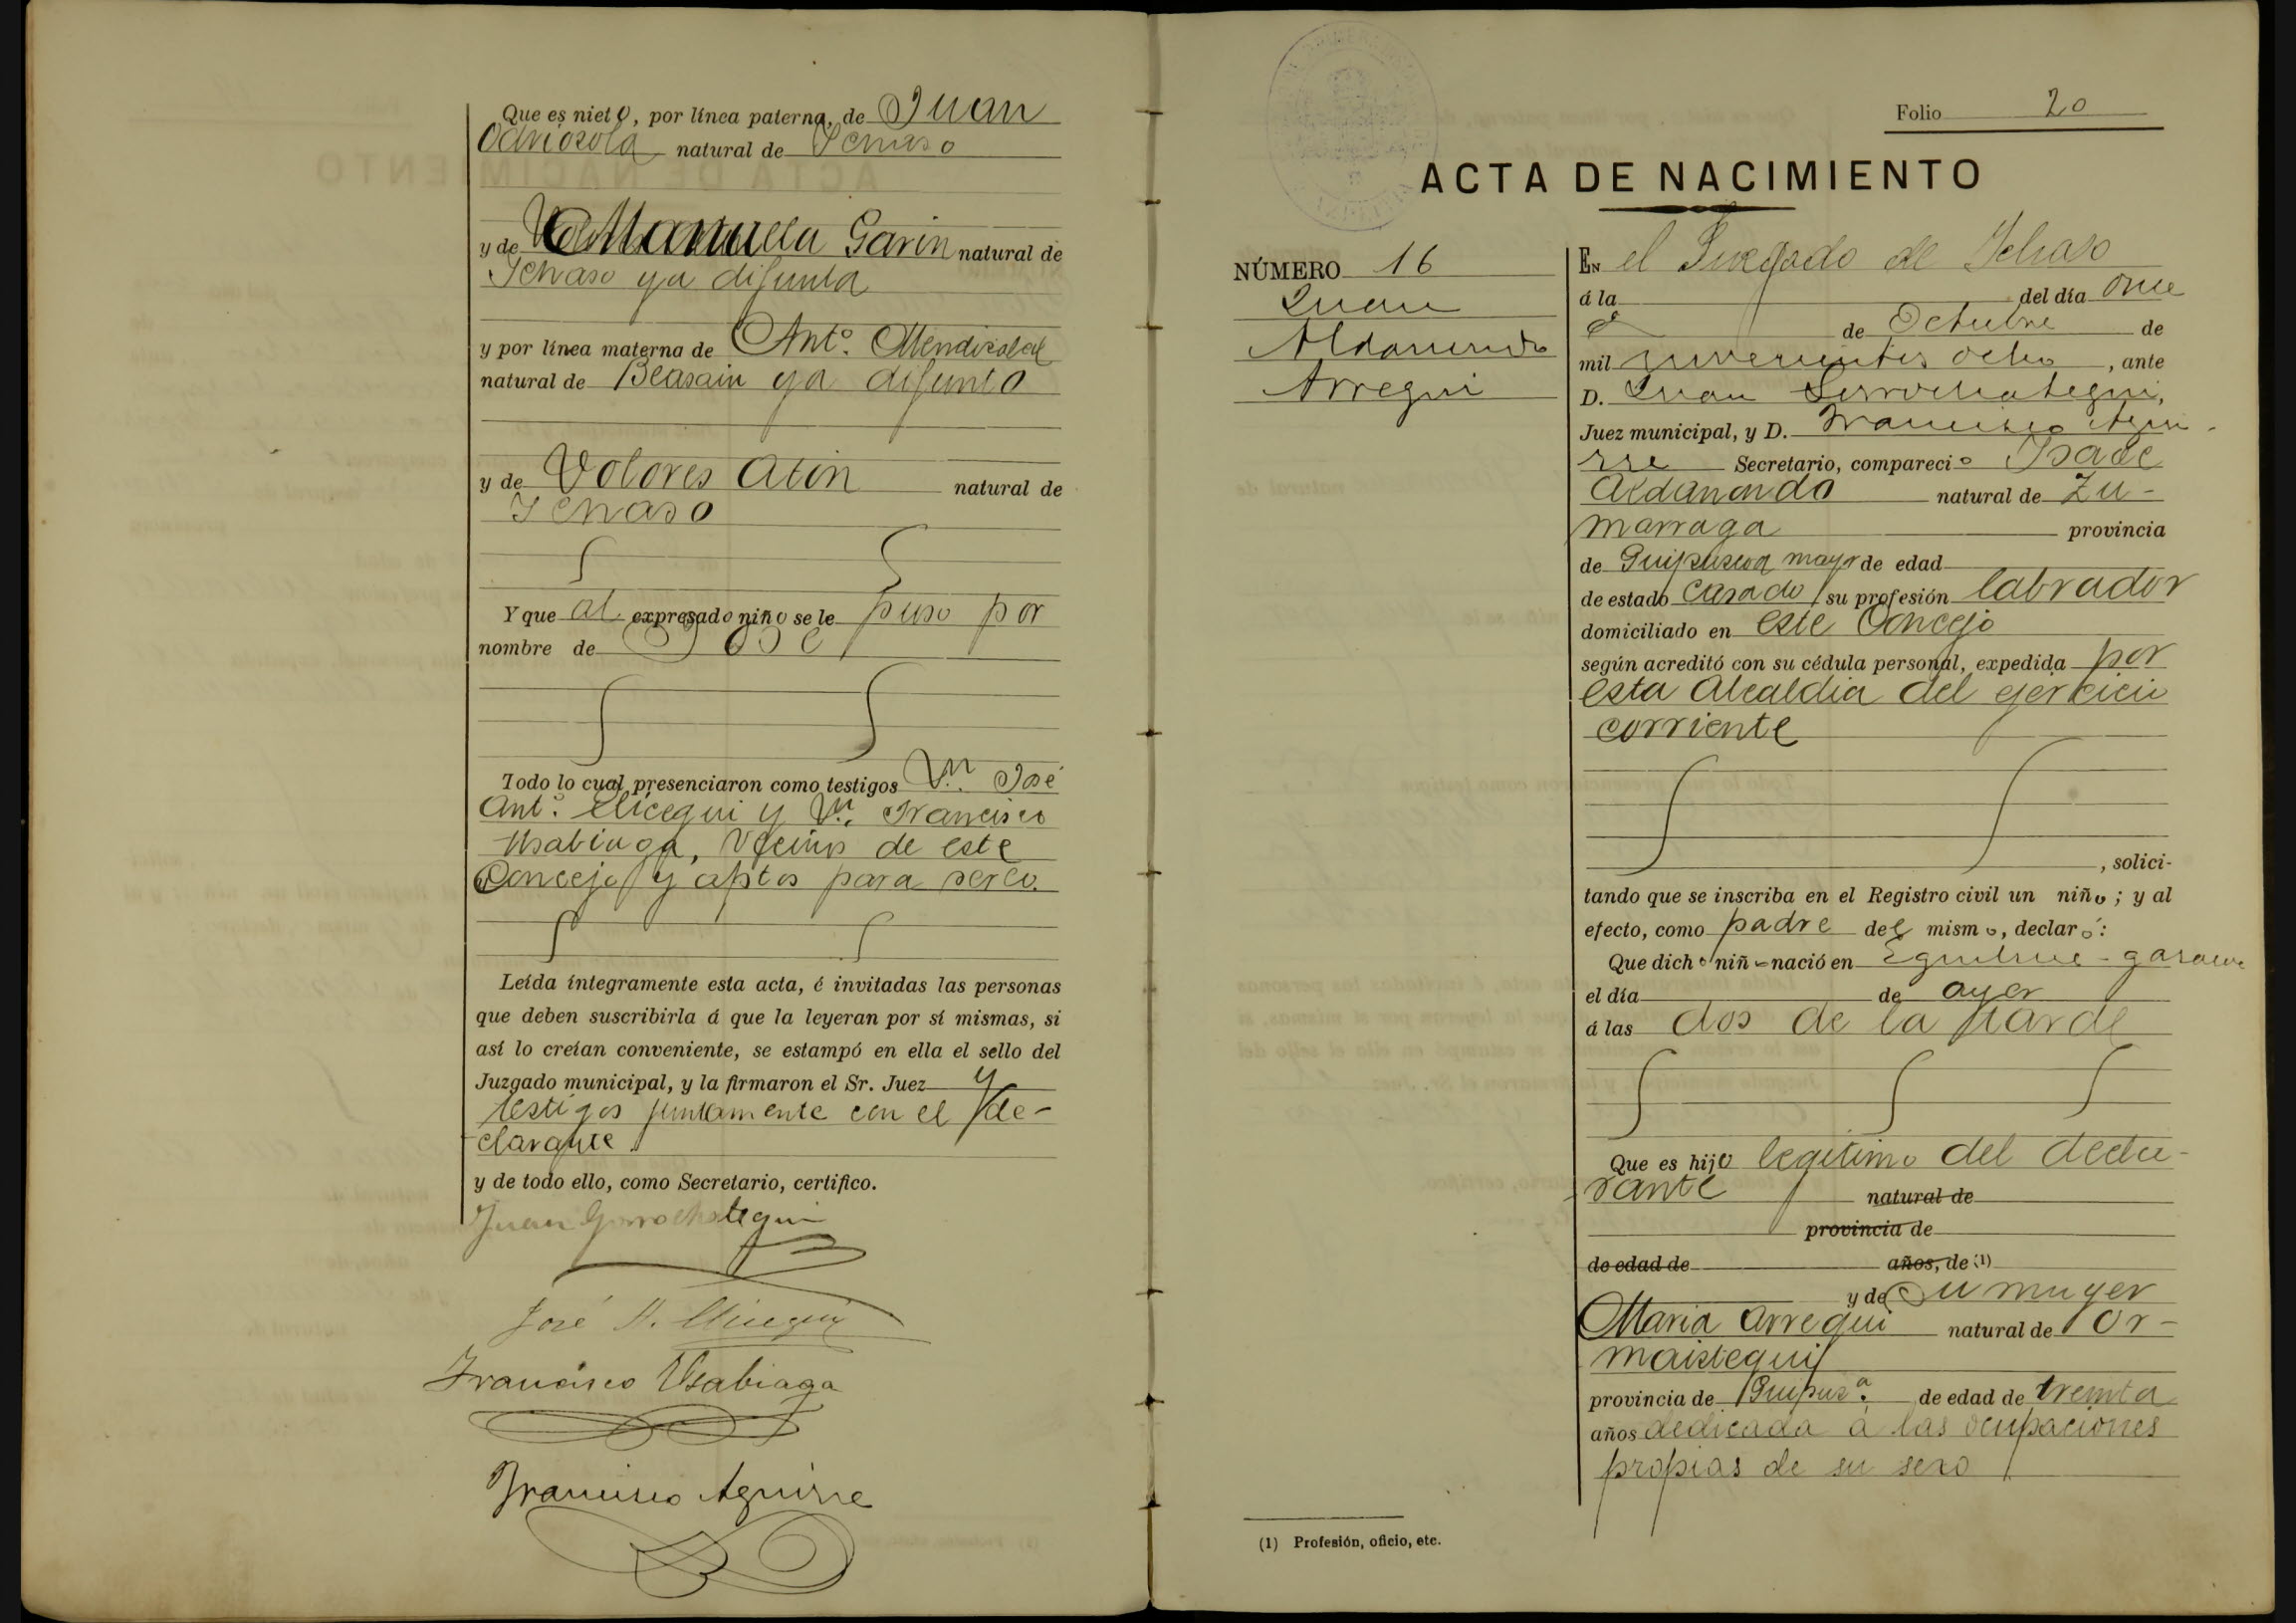 Que es nieto, por línea paterna, de Juan
Odriozola natural de Ichaso
y de Manuela Garin natural de
Ichaso ya difunta
y por línea materna de Antº. Mendizabal
natural de Beasain ya difunto
y de Dolores Atin natural de
Ichaso
Y que al expresado niño se le puso por
nombre de José
Todo lo cual presenciaron como testigos Dn. José
Antº. Elicegui y Dn. Francisco
Usabiaga, vecinos de este
Concejo y aptos para serlo.
Leída íntegramente esta acta, é invitadas las personas
que deben suscribirla á que la leyeran por sí mismas, si
así lo creían conveniente, se estampó en ella el sello del
Juzgado municipal, y la firmaron el Sr. Juez y
testigos juntamente con el de-
clarante
y de todo ello, como Secretario, certifico.
Juan Gorrochategui
José A. Elicegui
Francisco Usabiaga
Francisco Aguirre
Folio 20
ACTA DE NACIMIENTO
NÚMERO 16
Juan
Aldanondo
Arregui
EN el Juzgado de Ichaso
á la del día once
de Octubre de
mil novecientos ocho, ante
D. Juan Gorrochategui,
Juez municipal, y D. Francisco Agui-
rre Secretario, compareció José
Aldanondo natural de Zu-
marraga provincia
de Guipuzcoa mayor de edad
de estado casado su profesión labrador
domiciliado en este Concejo
según acreditó con su cédula personal, expedida por
esta Alcaldia del ejercicio
corriente
, solici-
tando que se inscriba en el Registro civil un niño; y al
efecto, como padre del mismo, declaró:
Que dicho niño nació en
el día de ayer
á las dos de la tarde
Que es hijo legitimo del decla-
rante natural de
provincia de
de edad de años, de (1)
y de su muger
Maria Arregui natural de Or-
maiztegui
provincia de Guipuzª. de edad de treinta
años dedicada á las ocupaciones
propias de su sexo
(1) Profesión, oficio, etc.